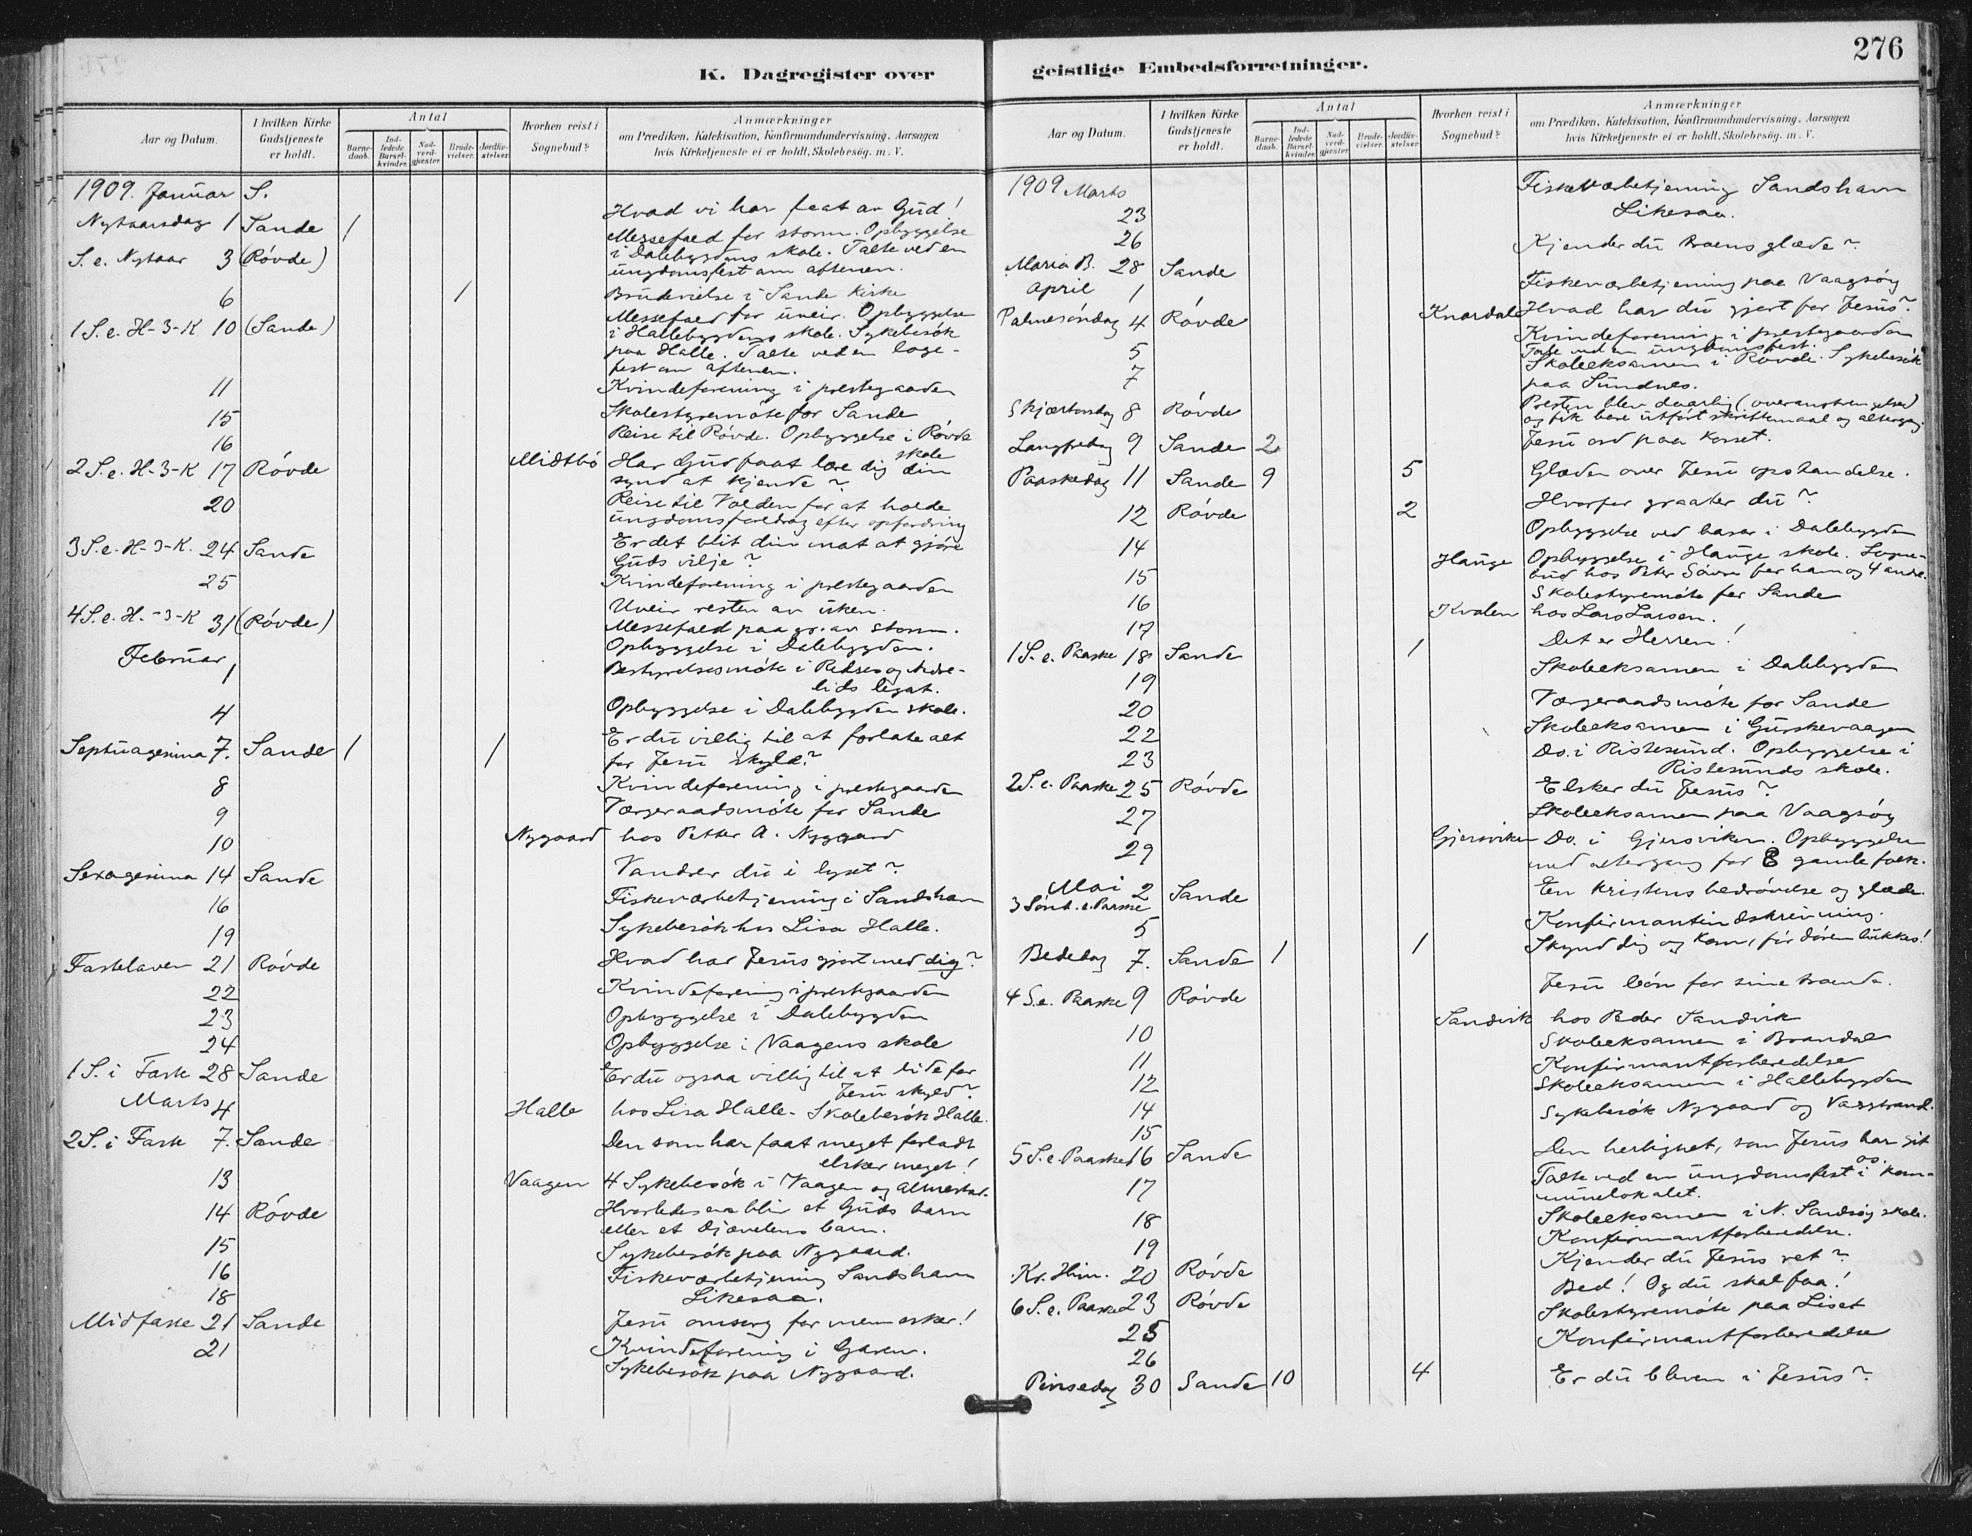 276
K. Dagregister over
Aar og Datum.
I hvilken Kirke Gudstjeneste er holdt.
Antal
Barnedaab.
Indledede Barselkvinder.
Nadverdgjæster
Brudevielser.
Jordfæstelser.
Hvorhen reist i Sognebud?
Anmærkninger
om Prædiken, Katekisation, Konfirmandundervisning, Aarsagen
hvis Kirketjeneste ei er holdt, Skolebesög. m. V.
1909. Januar S.
Nytaarsdag 1 Sande 1 Hvad vi har faat av Gud!
S. e. Nytaar 3 (Røvde) Messefald for storm. Opbyggelse
i Dalebygdens skole. Talte ved en
ungdomsfest om aftenen.
6 1 Brudevielse i Sande Kirke
1 S. e. H-3-K 10 (Sande) Messefald for uveir. Opbyggelse
i Hallebygdens skole. Sykebesøk
paa Halle. Talte ved en loge-
fest om aftenen.
11 Kvindeforening i prestegaarden
15 Skolestyremøte for Sande
16 Reise til Røvde. Opbyggelse i Røvde
skole
2 S. e. H-3-K 17 Røvde Midtbø Har Gud faat lære dig din
synd at kjende?
20 Reise til Volden for at holde
ungdomsforedrag efter opfordring
3 S. e. H-3-K. 24 Sande Er det blit din mat at gjøre
Guds vilje?
25 Kvindeforening i prestegaarden
Uveir resten av uken.
4 S. e. H.-3-K 31 (Røvde) Messefald paa gr. av storm.
Opbyggelse i Dalebygden.
Februar 1 Bestyrelsesmøte i
lids legat.
4 Opbyggelse i Dalebygden skole.
Septuagesima 7. Sande 1 1 Er du villig til at forlate alt
for Jesu skyld?
8 Kvindeforening i prestegaarden
9 Værgeraadsmøte for Sande
10 Nygaard hos Petter A. Nygaard
Sexagesima 14 Sande Vandrer du i lyset?
16 Fiskeværbetjening i Sandshavn
19 Sykebesøk hos Lisa Halle.
Fastelaven 21 Røvde Hvad har Jesus gjort med dig?
22 Kvindeforening i prestegaarden
23 Opbyggelse i Dalebygden
24 Opbyggelse i Vaagens skole
1 S. i Fast 28 Sande Er du ogsaa villig til at lide for
Jesu skyld?
Marts 4 Halle hos Lisa Halle. Skolebesøk Halle.
2 S. i Fast 7. Sande Den som har faat meget forladt
elsker meget!
13 Vaagen 4 Sykebesøk i Vaagen og Almestad.
14 Røvde Hvorledes man blir et Guds barn
eller et djævelens barn.
15 Sykebesøk paa Nygaard.
16 Fiskeværbetjening Sandshavn
18 Likesaa.
Midfaste 21 Sande Jesu omsorg for mennesker!
21 Kvindeforening i Garen.
Sykebesøk paa Nygaard.
geistlige Embedsforretninger.
Aar og Datum.
I hvilken Kirke Gudstjeneste er holdt.
Antal
Barnedaab.
Indledede Barselkvinder.
Nadverdgjæster
Brudevielser.
Jordfæstelser
Hvorhen reist i Sognebud?
Anmærkninger
om Prædiken, Katekisation, Konfirmandundervisning, Aarsagen
hvis Kirketjeneste ei er holdt, Skolebesög. m. V.
1909 Marts Fiskeværbetjening Sandshavn
23 Likesaa.
26 Kjender du troens glæde?
Maria B. 28 Sande
April 1 Fiskeværbetjening paa Vaagsøy
Palmesøndag 4 Røvde Knardal Hvad har du gjort for Jesus?
5 Kvindeforening i prestegaarden
Talte ved en ungdomsfest.
7 Skoleeksamen i Røvde. Sykebesøk
paa Sundnes.
Skjærtorsdag 8 Røvde Presten blev daarlig (overanstrengelse)
og fik bare utført skriftemaal og altergang
Langfredag 9 Sande 2 Jesu ord paa korset.
Paaskedag 11 Sande 9 5 Glæden over Jesu opstandelse.
12 Røvde 2 Hvorfor graater du?
14 Opbyggelse ved basar i Dalebygden
15 Hauge Opbyggelse i Hauge skole. Sogne-
bud hos Peter Søvre for ham og 4 andre.
16 Skolestyremøte for Sande
17 Kvalen hos Lars Larsen.
1 S. e. Paaske 18 Sande 1 Det er Herren!
19 Skoleeksamen i Dalebygden
20 Værgeraadsmøte for Sande
22 Skoleeksamen i Gurskevaagen
23 Do. i Ristesund. Opbyggelse i
Ristesunds skole.
2 S. e. Paaske 25 Røvde Elsker du Jesus?
27 Skoleeksamen paa Vaagsøy
29 Gjersviken Do. i Gjersviken. Opbyggelse
med altergang for 8 gamle folk.
Mai 2 Sande En kristens bedrøvelse og glæde.
3 Sønd. e. Paaske
5 Konfirmantindskrivning.
Bededag 7. Sande 1 1 Skynd dig og kom, før døren lukkes!
4 S. e. Paaske 9 Røvde Jesu bøn for sine troende.
10 Sandvik hos Peder Sandvik
11 Skoleeksamen i Brandal
12 Konfirmantforberedelse
Skoleeksamen i Hallebygden
14 Sykebesøk Nygaard og Vaagstrand.
15
5 S. e. Paaske 16 Sande Den herlighet, som Jesus har git
os.
17 Talte ved en ungdomsfest i kom-
munelokalet.
18 Skoleeksamen i N. Sandsøy skole.
19 Konfirmantforberedelse.
Kr. Him. 20 Røvde Kjender du Jesus ret?
6 S. e. Paaske 23 Røvde Bed! Og du skal faa!
25 Skolestyremøte paa Liset
26 Konfirmantforberedelse
Pinsedag 30 Sande 10 4 Er du bleven i Jesus?